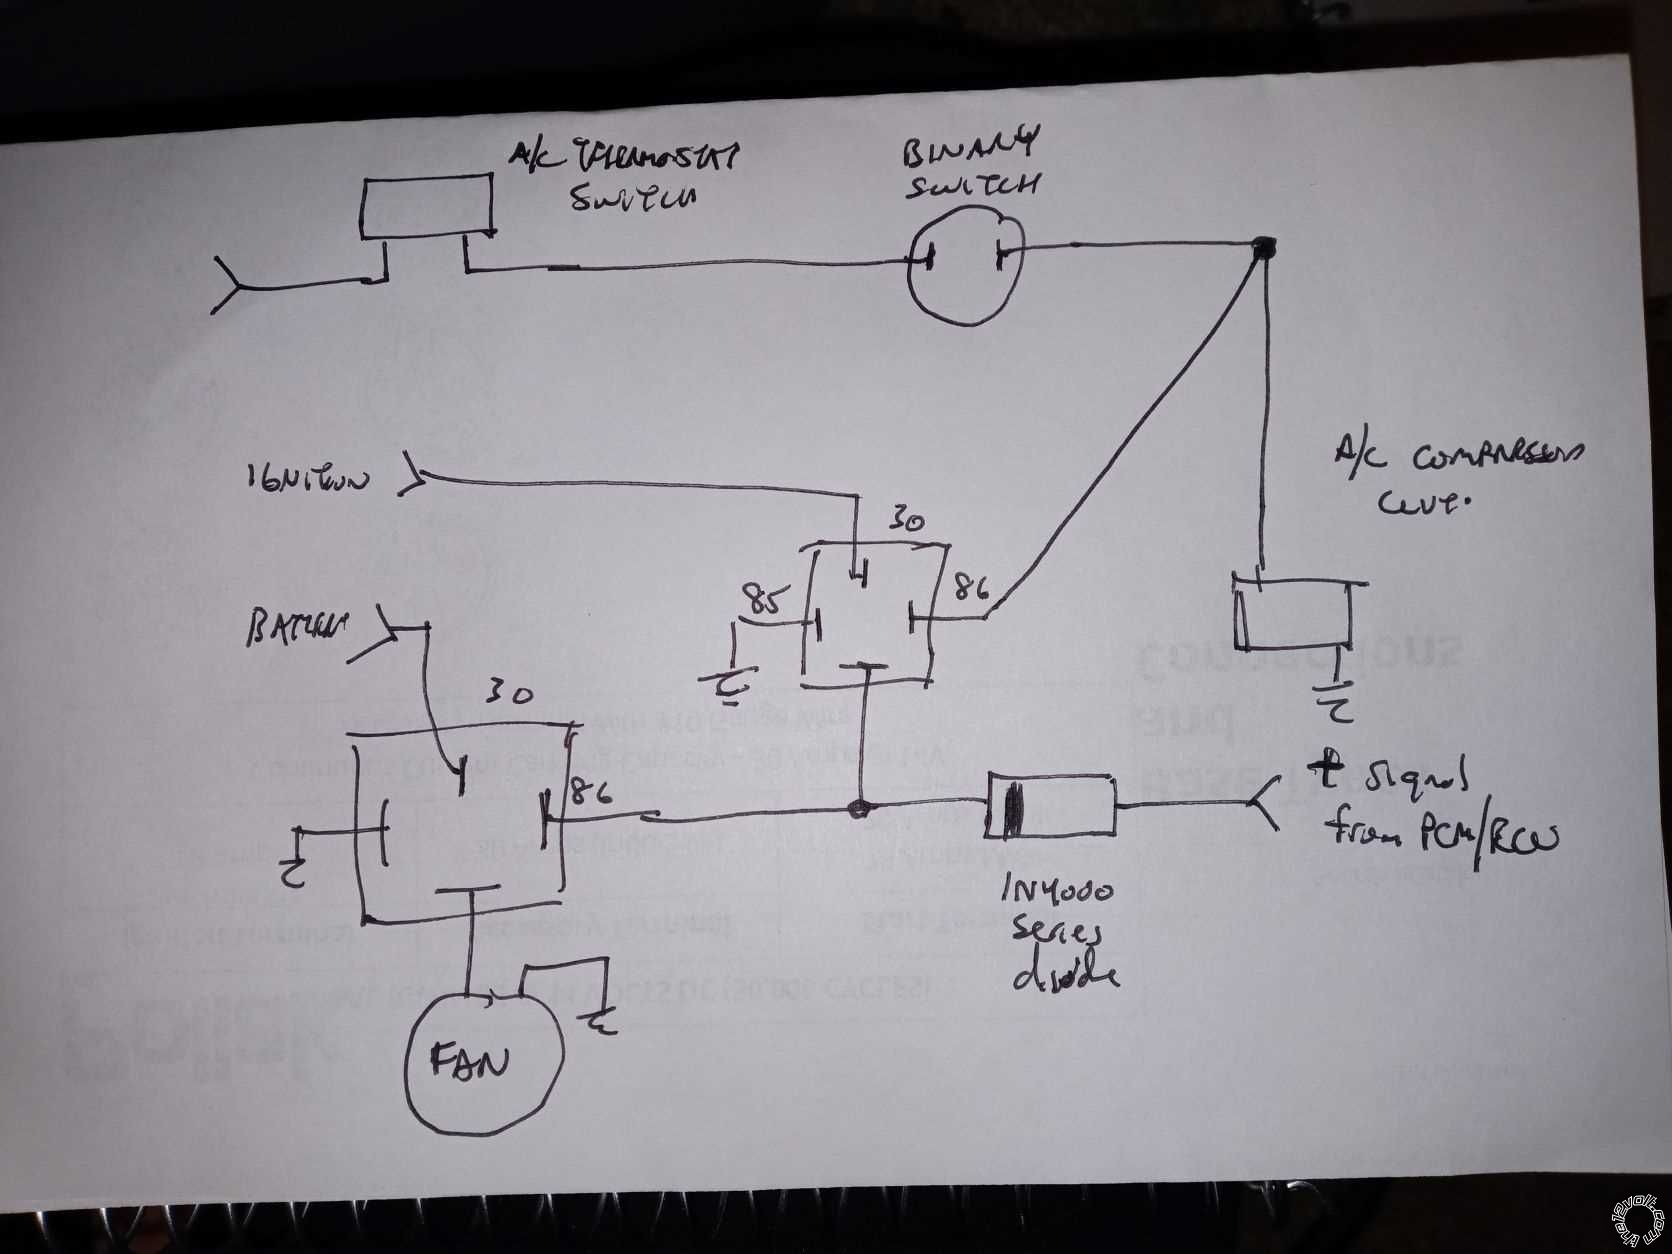 A/C THERMOSTAT
SWITCH
BINARY
SWITCH
IGNITION
A/C COMPRESSOR
CLUT.
30
85
86
BATTERY
30
86
+ Signal
from PCM/BCM
1N4000
Series
diode
FAN
the12volt.com